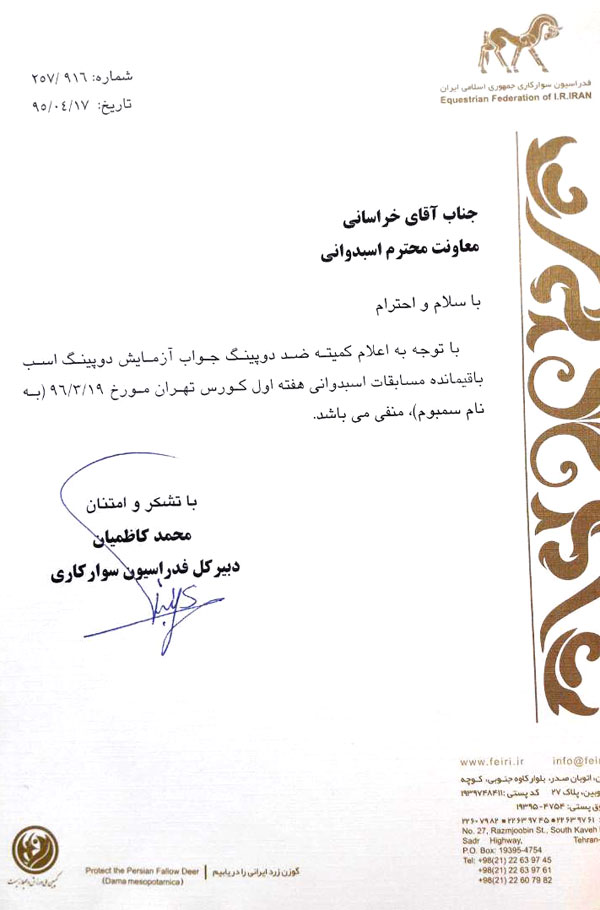 فدراسیون سوارکاری جمهوری اسلامی ایران
Equestrian Federation of I.R.IRAN
شماره: ۹۱۶ /۲۵۷
تاریخ: ۹۵/۰۴/۱۷
جناب آقای خراسانی
معاونت محترم اسبدوانی
با سلام و احترام
با توجه به اعلام کمیته ضد دوپینگ جواب آزمایش دوپینگ اسب
باقیمانده مسابقات اسبدوانی هفته اول کورس تهران مورخ ۹۶/۳/۱۹ (به
نام سمبوم)، منفی می باشد.
با تشکر و امتنان
محمد کاظمیان
دبیرکل فدراسیون سوارکاری
www.feiri.ir info@feiri
اتوبان صدر، بلوار کاوه جنوبی، کوچه
پلاک ۲۷ کد پستی: ۱۹۳۹۷۴۸۴۱۱
پستی: ۴۷۵۴-۱۹۳۹۵
۲۲۶۰۷۹۸۲ * ۲۲۶۳۹۷۴۵ * ۲۲۶۳۹۷۶۱
No. 27, Razmjoobin St., South Kaveh
Sadr Highway, Tehran-
P.O. Box: 19395-4754
Tel: +98(21) 22 63 97 45
+98(21) 22 63 97 61
+98(21) 22 60 79 82
گوزن زرد ایرانی را دریابیم
Protect the Persian Fallow Deer
(Dama mesopotamica)